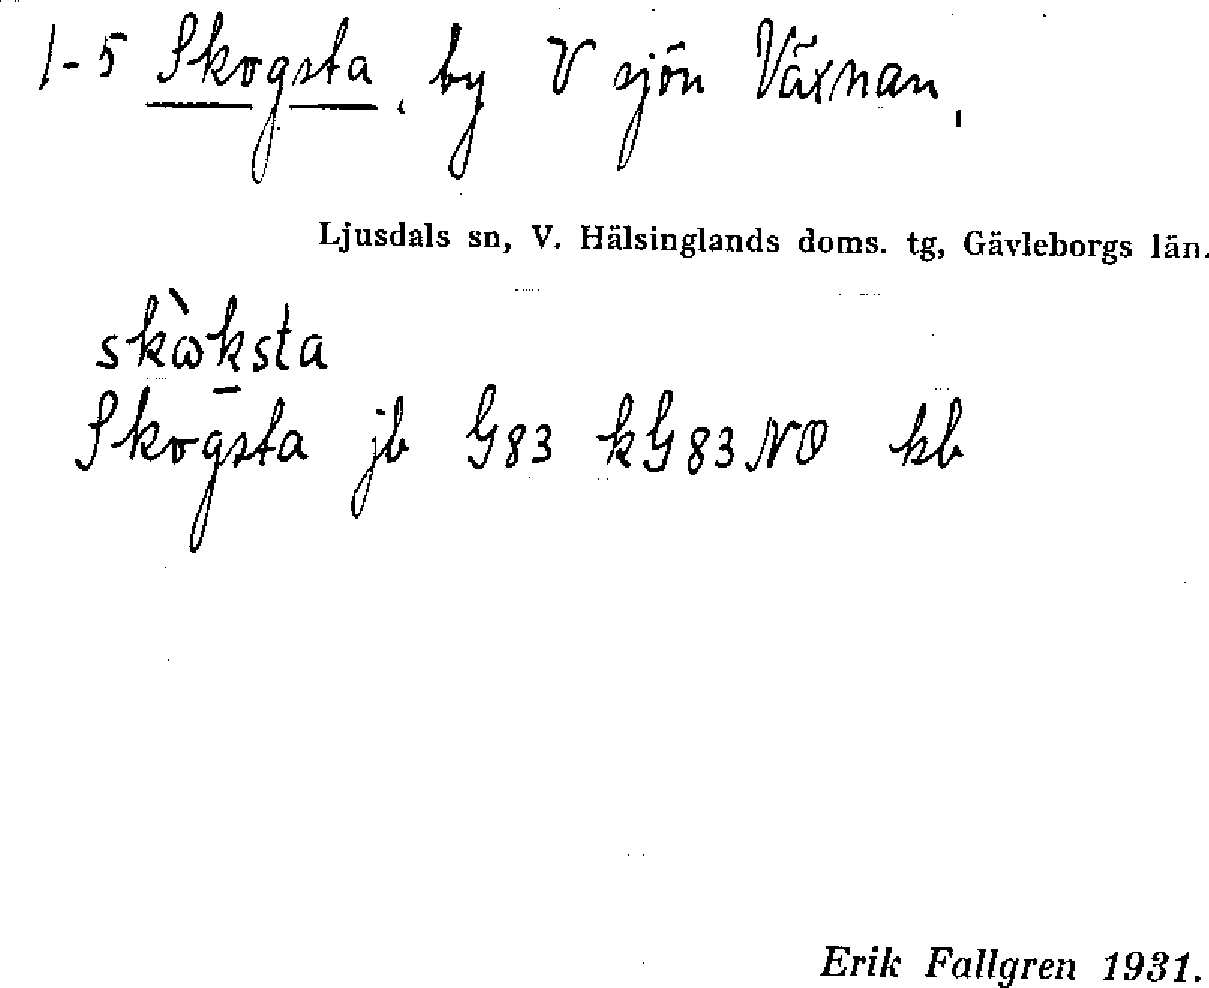 1-5 Skogsta, by V sjön Växnan,
Ljusdals sn, V. Hälsinglands doms. tg, Gävleborgs län.
skὼksta
Skogsta jb G83 kG83NO kb
Erik Fallgren 1931.